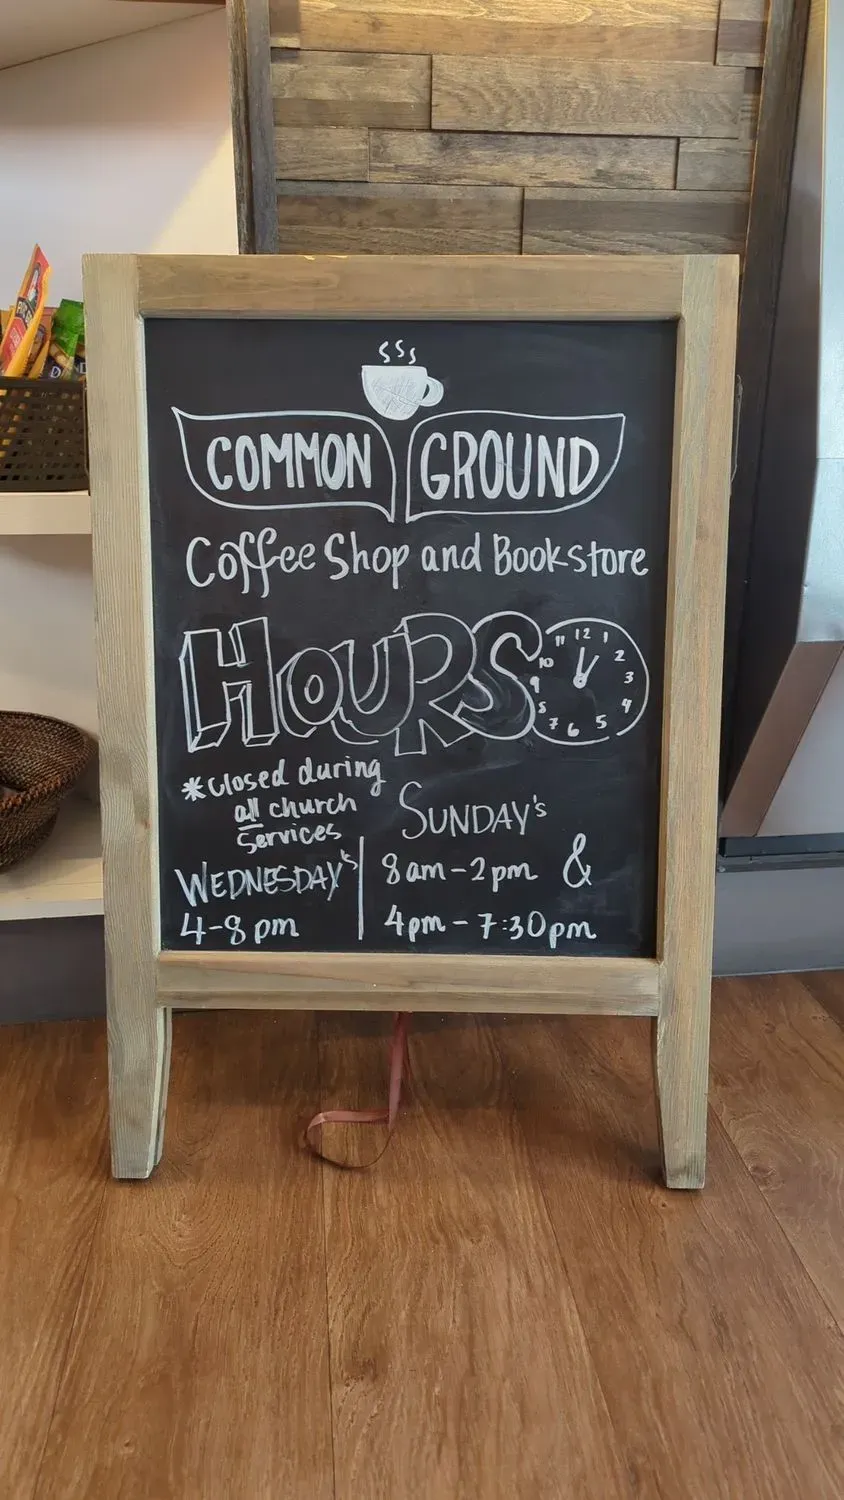 COMMON GROUND
Coffee Shop and Bookstore
HOURS
12
1
2
3
4
5
6
7
8
9
10
11
*Closed during
all church
Services
WEDNESDAY's
4-8 pm
SUNDAY's
8am-2pm &
4pm-7:30pm